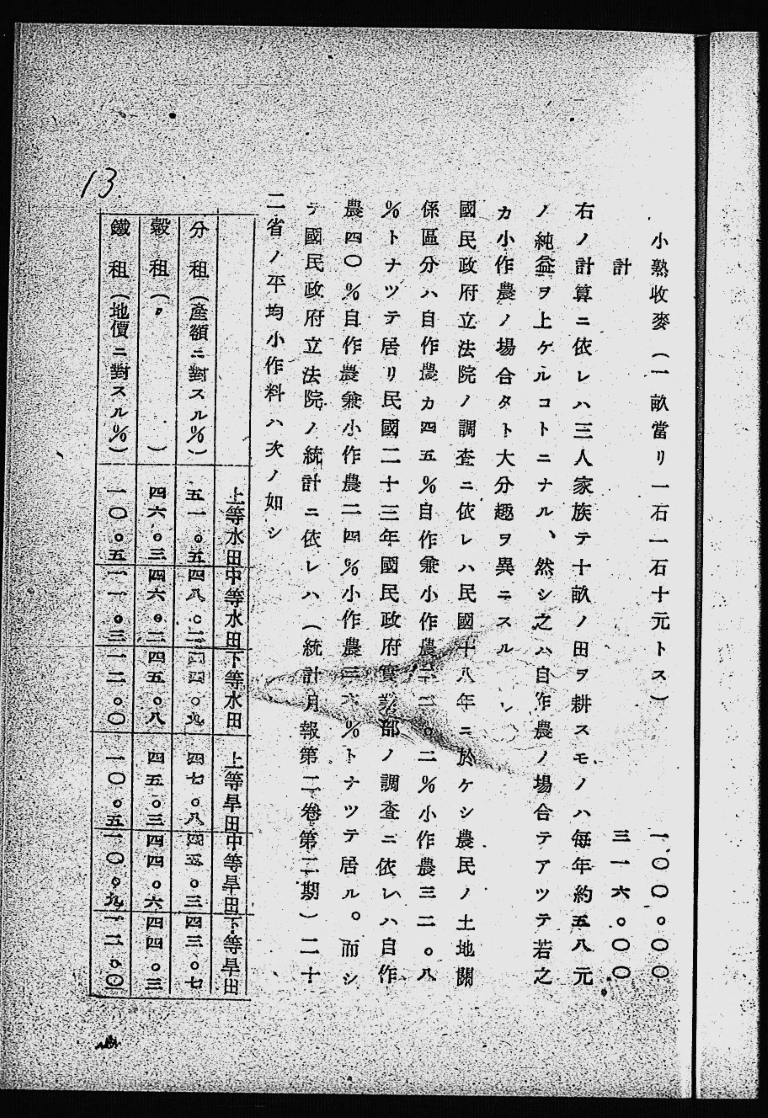 小熟收麥（一畝當リ一石一石十元トス） 一〇〇。〇〇
計 三一六。〇〇
右ノ計算ニ依レハ三人家族テ十畝ノ田ヲ耕スモノハ每年約五八元
ノ純益ヲ上ケルコトニナル、然シ之ハ自作農ノ場合テアツテ若之
カ小作農ノ場合タト大分趣ヲ異ニスル
國民政府立法院ノ調査ニ依レハ民國十八年ニ於ケシ農民ノ土地關
係區分ハ自作農カ四五％自作兼小作農二三。二％小作農三二。八
％トナツテ居リ民國二十三年國民政府實業部ノ調査ニ依レハ自作
農四〇％自作農兼小作農二四％小作農三六％トナツテ居ル。而シ
テ國民政府立法院ノ統計ニ依レハ（統計月報第二卷第二期）二十
二省ノ平均小作料ハ次ノ如シ
上等水田 中等水田 下等水田 上等旱田 中等旱田 下等旱田
分租（產額ニ對スル％） 五一。五 四八。二 四四。九 四七。八 四五。三 四三。七
穀租（〃） 四六。三 四六。二 四五。八 四五。三 四四。六 四四。三
錢租（地價ニ對スル％） 一〇。五 一一。三 一二。〇 一〇。五 一〇。九 一二。〇
13